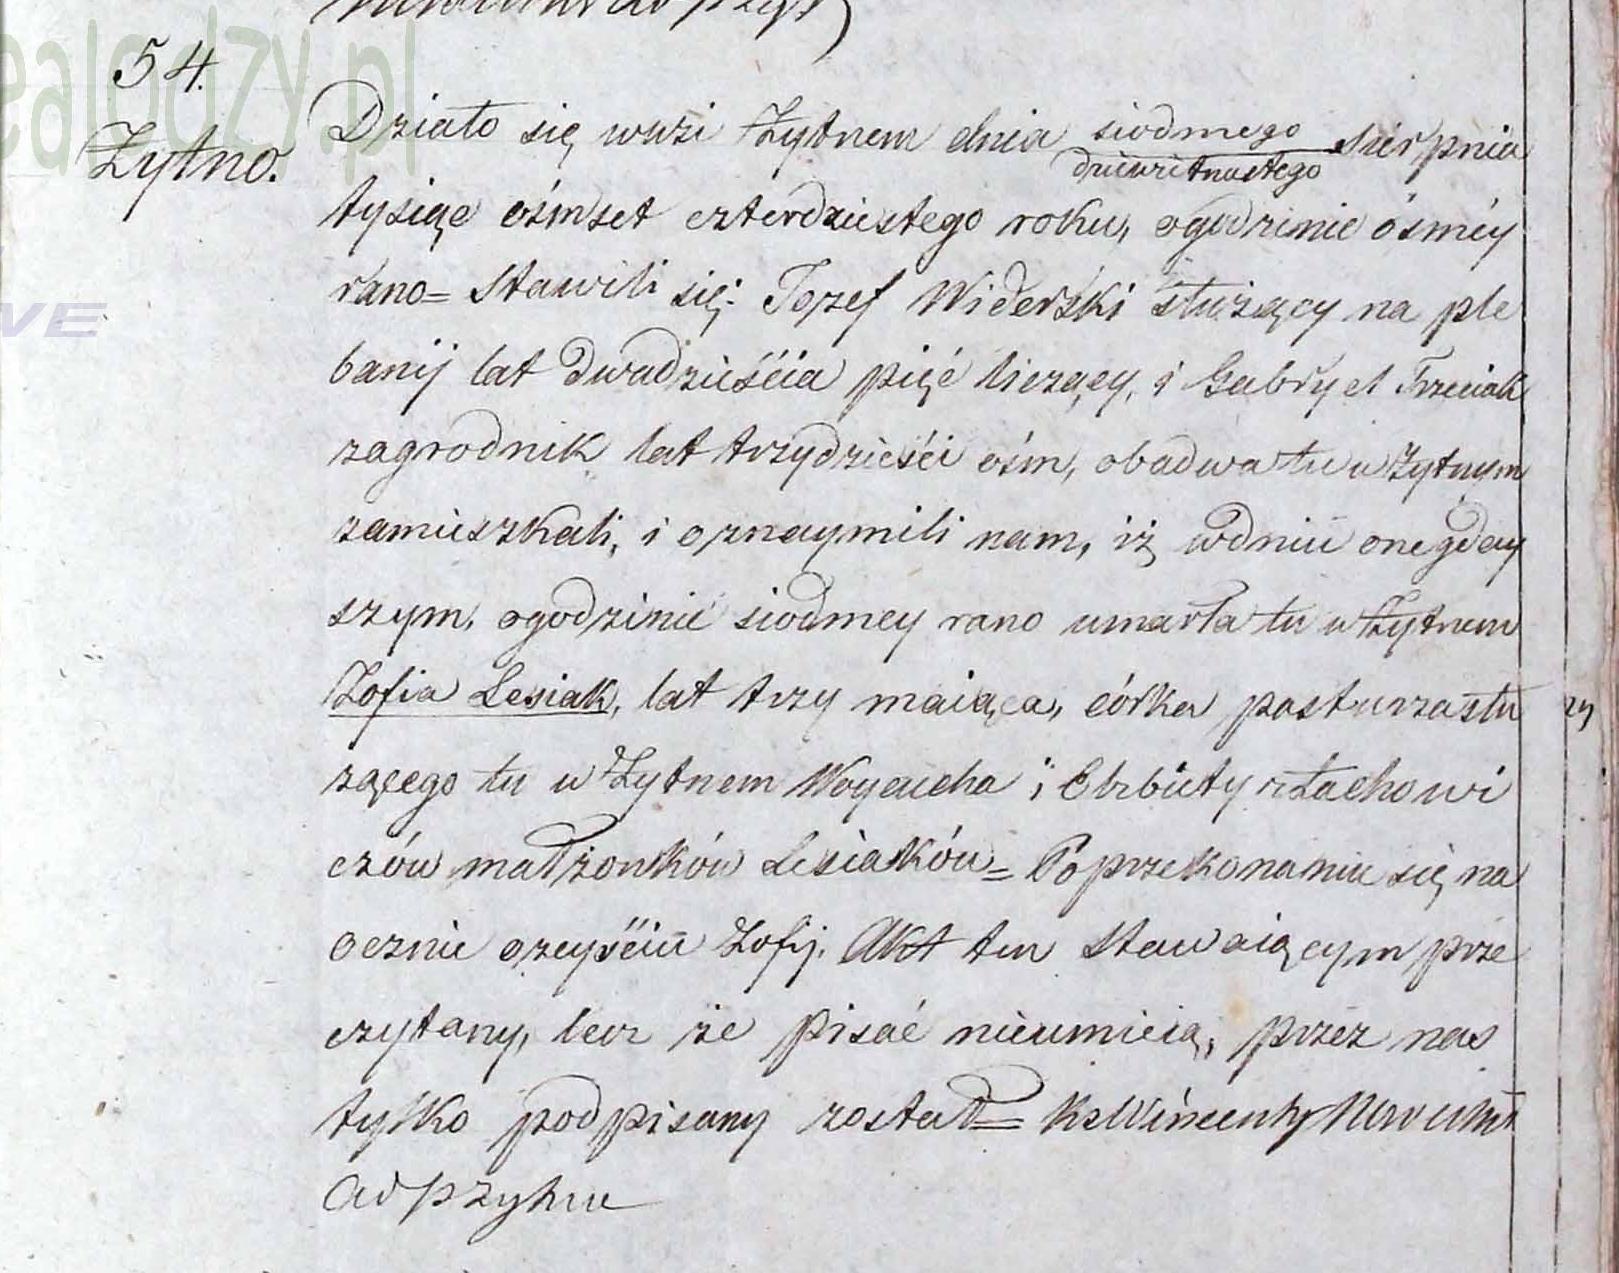 54.
Żytno.
Działo się wwsi Żytnem dnia siodmego sierpnia
dziewietnastego
tysiąc ośmset czterdziestego roku, ogodzinie ósméy
rano= Stawili się: Jozef Widerski służący na ple
banij lat dwadzieścia pięć liczący, i Gabryel Trzeciak
zagrodnik lat trzydzieści ośm, obadwa tu w Żytnym
zamieszkali, i oznaymili nam, iż wdniu onegday
szym, ogodzinie siodmey rano umarła tu w Żytnem
Zofia Lesiak, lat trzy maiąca, córka pasturza słu
żącego tu w Żytnem Woyciecha i Elzbiety z Łachowi
czów małżonków Lesiaków= Poprzekonaniu się na
ocznie ozeyściu Zofij. Akt ten stawaiącym prze
czytany, lecz że pisać nieumieią, przez nas
tylko podpisany został= Ks Wincenty
Adpżytnie